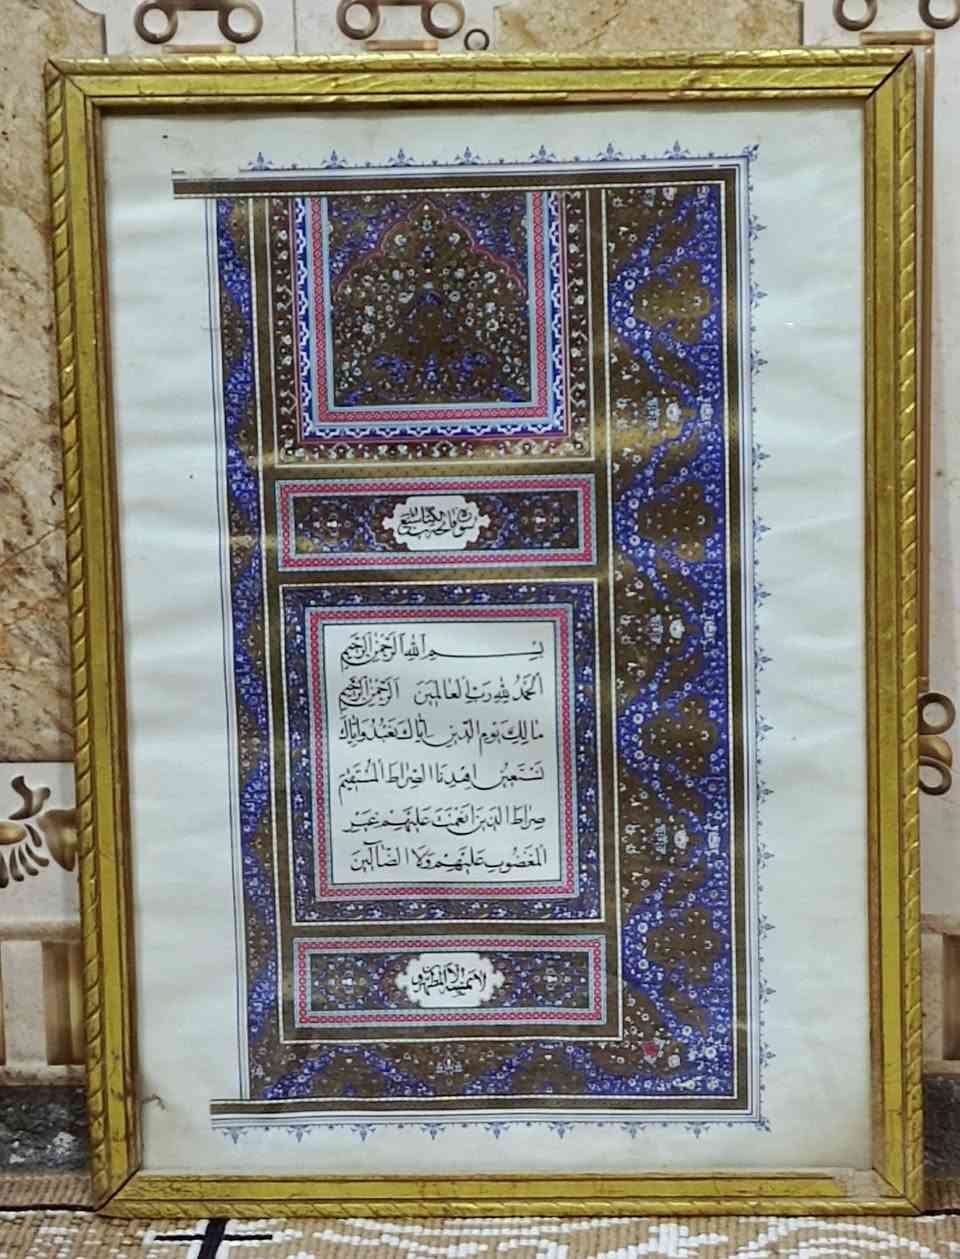 سورة فاتحة الكتاب سبع
بِسْمِ اللهِ الرَّحْمٰنِ الرَّحِيمِ
اَلْحَمْدُ لِلّٰهِ رَبِّ الْعَالَمِينَ الرَّحْمٰنِ الرَّحِيمِ
مَالِكِ يَوْمِ الدِّينِ اِيَّاكَ نَعْبُدُ وَاِيَّاكَ
نَسْتَعِينُ اِهْدِنَا الصِّرَاطَ الْمُسْتَقِيمَ
صِرَاطَ الَّذِينَ اَنْعَمْتَ عَلَيْهِمْ غَيْرِ
الْمَغْضُوبِ عَلَيْهِمْ وَلَا الضَّالِّينَ
لا يمسه الا المطهرون